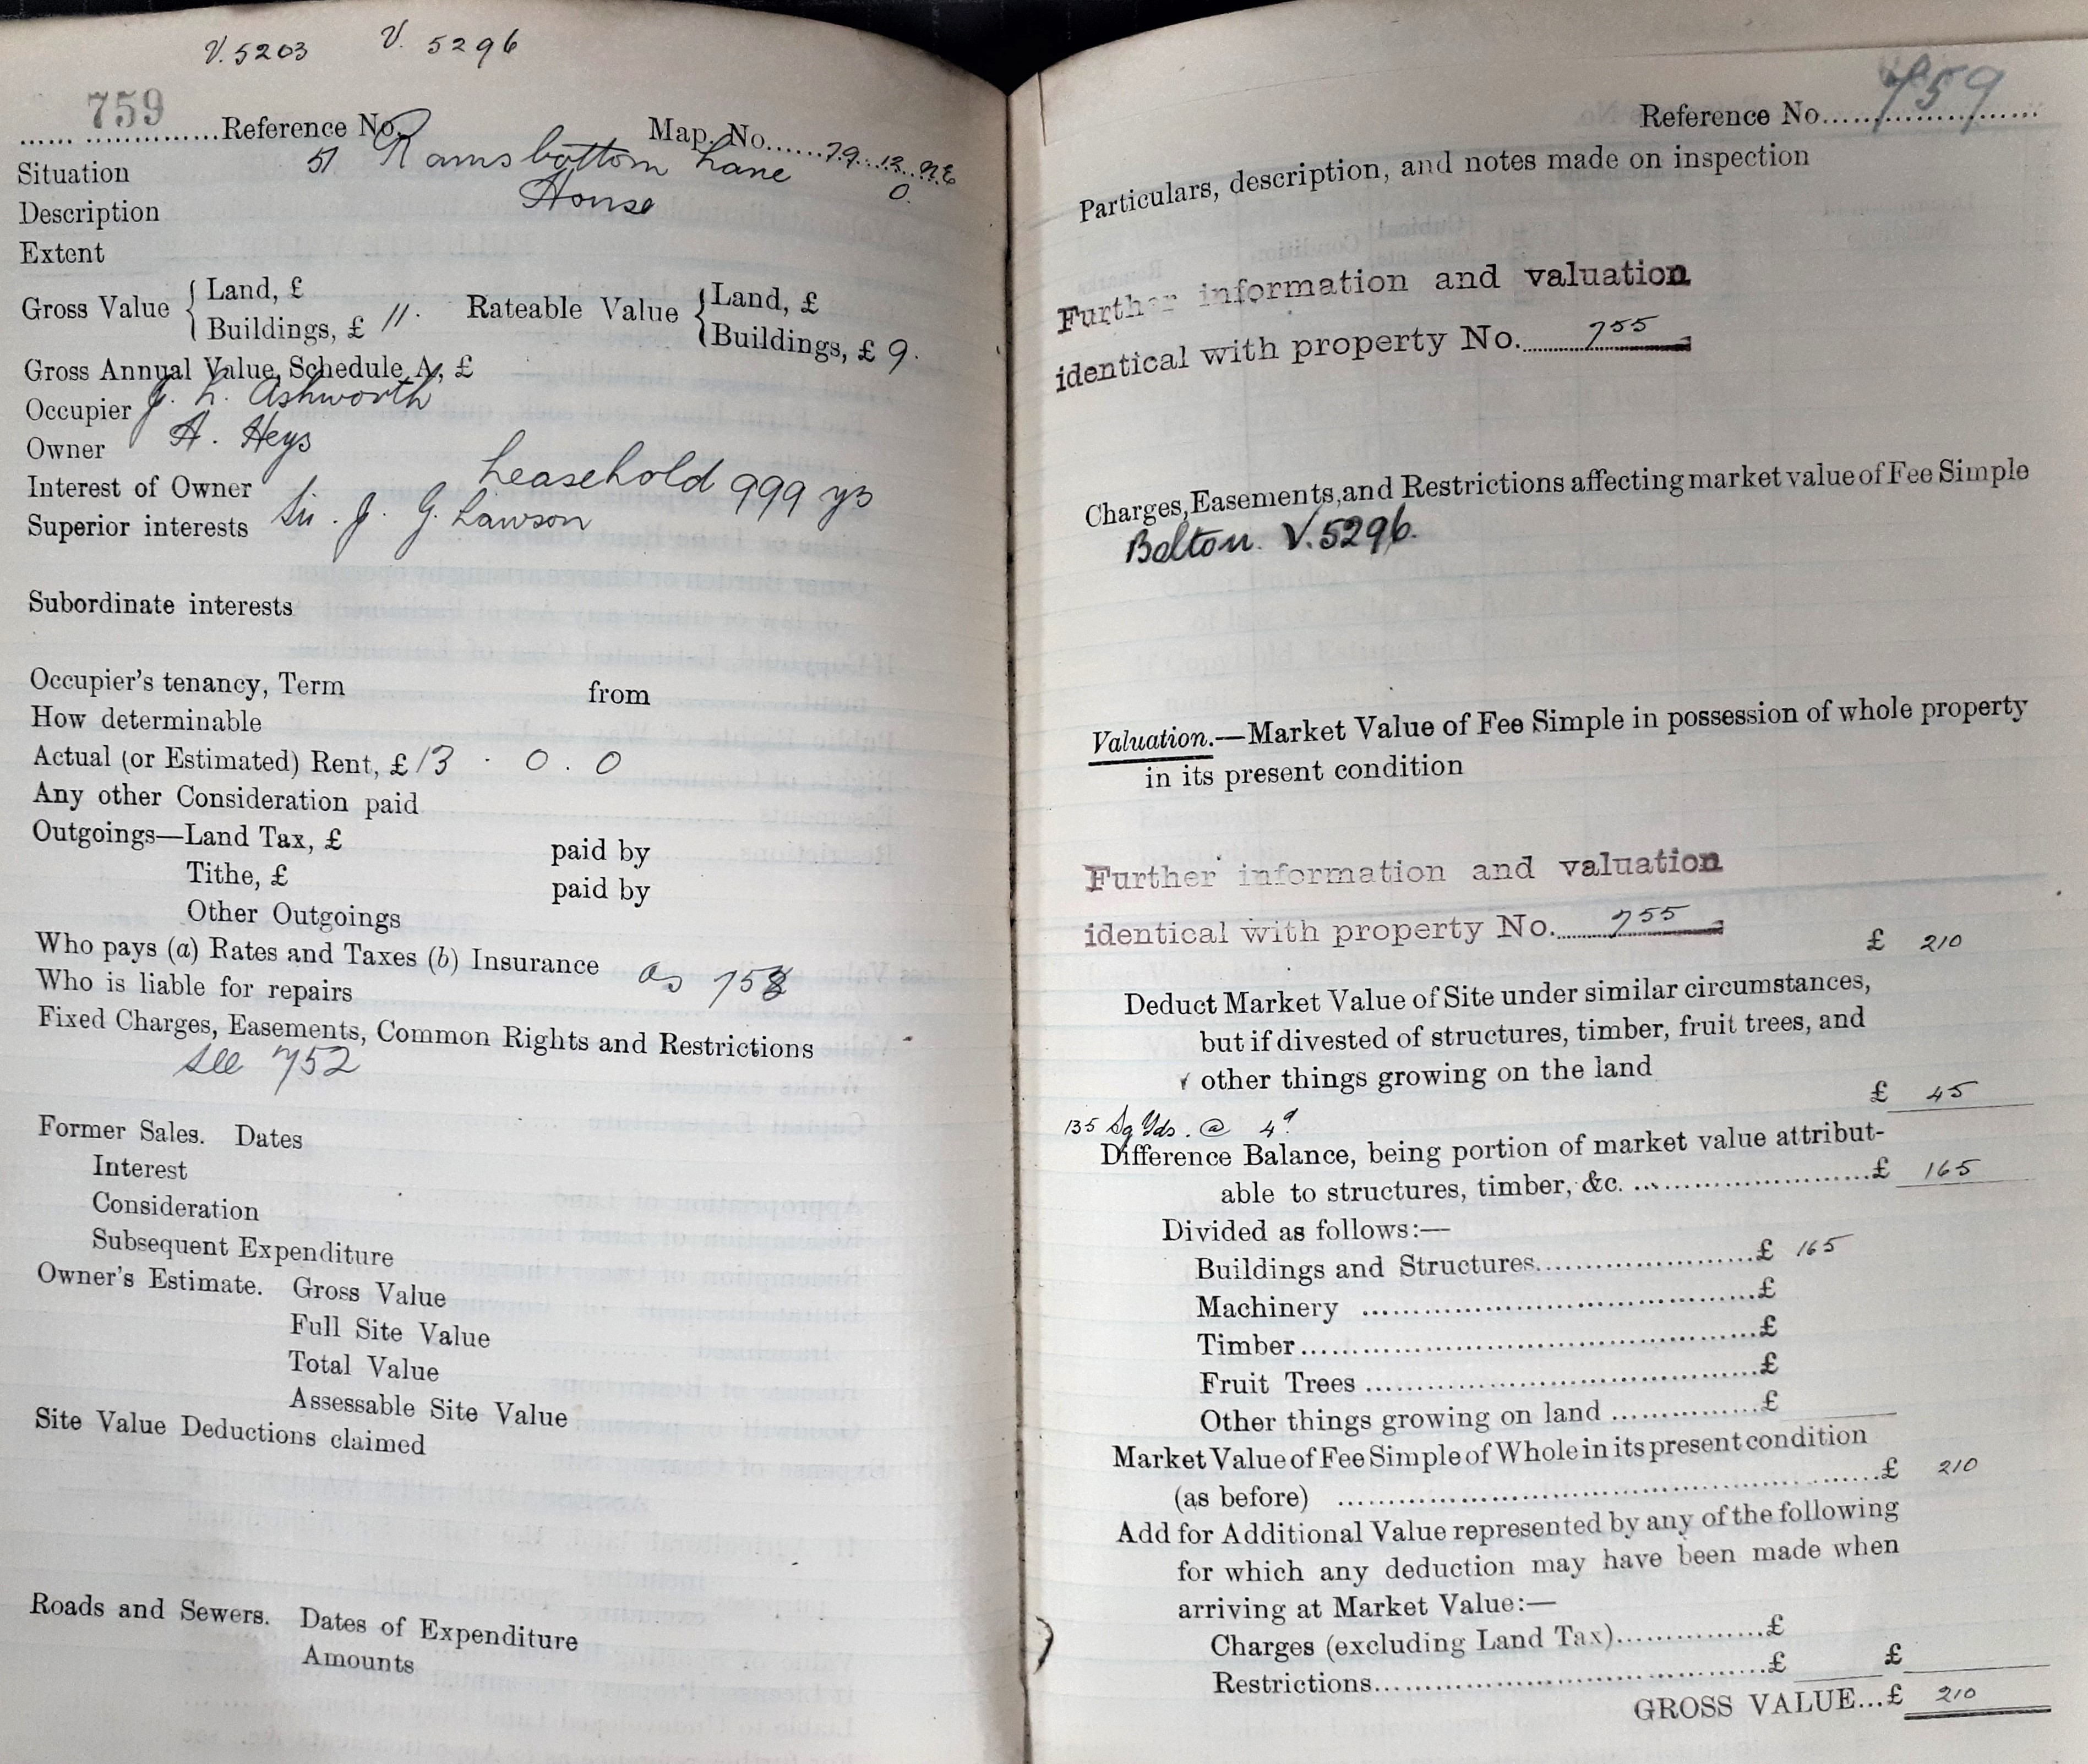 V. 5203 V. 5296
759
...... ..................Reference No. Map. No......79.12.NE
Situation 51 Ramsbottom Lane 0.
Description House
Extent
Gross Value { Land, £ Rateable Value { Land, £
Buildings, £ 11. Buildings, £ 9.
Gross Annual Value, Schedule A, £
Occupier J. L. Ashworth
Owner A. Heys
Interest of Owner Leasehold 999 ys
Superior interests Sir. J. G. Lawson
Subordinate interests
Occupier's tenancy, Term from
How determinable
Actual (or Estimated) Rent, £ 13 . 0 . 0
Any other Consideration paid
Outgoings—Land Tax, £ paid by
Tithe, £ paid by
Other Outgoings
Who pays (a) Rates and Taxes (b) Insurance as
Who is liable for repairs
Fixed Charges, Easements, Common Rights and Restrictions
See 752
Former Sales. Dates
Interest
Consideration
Subsequent Expenditure
Owner's Estimate. Gross Value
Full Site Value
Total Value
Assessable Site Value
Site Value Deductions claimed
Roads and Sewers. Dates of Expenditure
Amounts
Reference No. 759
Particulars, description, and notes made on inspection
Further information and valuation
identical with property No. 755
Charges, Easements, and Restrictions affecting market value of Fee Simple
Bolton. V.5296.
Valuation.—Market Value of Fee Simple in possession of whole property
in its present condition
Further information and valuation
identical with property No. 755
£ 210
Deduct Market Value of Site under similar circumstances,
but if divested of structures, timber, fruit trees, and
other things growing on the land
£ 45
135 Sq Yds. @ 4d
Difference Balance, being portion of market value attribut-
able to structures, timber, &c. ........................£ 165
Divided as follows:—
Buildings and Structures.......................£ 165
Machinery .........................................£
Timber................................................£
Fruit Trees .........................................£
Other things growing on land ................£
Market Value of Fee Simple of Whole in its present condition
(as before) .........................................................£ 210
Add for Additional Value represented by any of the following
for which any deduction may have been made when
arriving at Market Value:—
Charges (excluding Land Tax)................£
Restrictions..........................................£ £
GROSS VALUE...£ 210